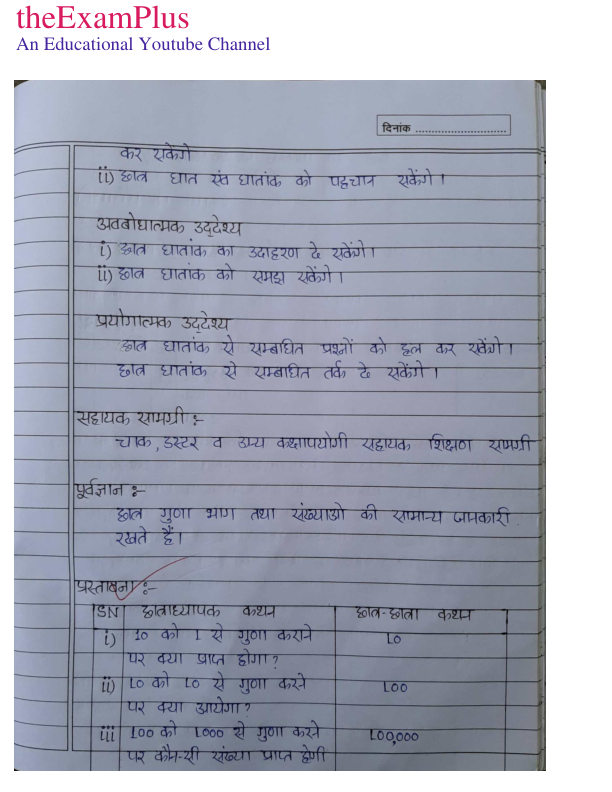 theExamPlus
An Educational Youtube Channel
दिनांक
कर सकेंगे
ii) छात्र घात एवं घातांक को पहचान सकेंगे।
अवबोधात्मक उद्देश्य
i) छात्र घातांक का उदाहरण दे सकेंगे।
ii) छात्र घातांक को समझ सकेंगे।
प्रयोगात्मक उद्देश्य
छात्र घातांक से सम्बाधित प्रश्नों को हल कर सकेंगे।
छात्र घातांक से सम्बाधित तर्क दे सकेंगे।
सहायक सामग्री :-
चाक, डस्टर व अन्य कक्षापयोगी सहायक शिक्षण सामग्री
पूर्वज्ञान :-
छात्र गुणा भाग तथा संख्याओ की सामान्य जानकारी
रखते हैं।
प्रस्तावना :-
SN छात्राध्यापक कथन छात्र-छात्रा कथन
i) 10 को 1 से गुणा कराने 10
पर क्या प्राप्त होगा?
ii) 10 को 10 से गुणा करने 100
पर क्या आयेगा?
iii 100 को 1000 से गुणा करने 100,000
पर कौन-सी संख्या प्राप्त होगी